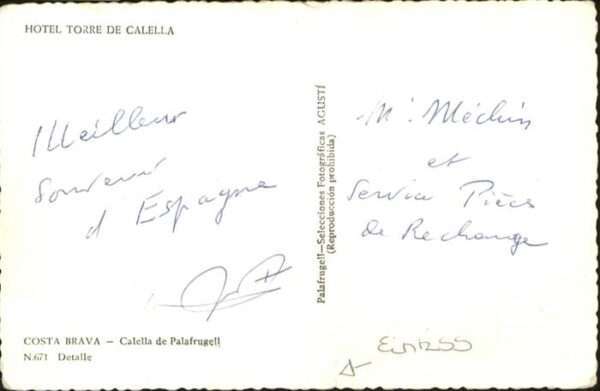 HOTEL TORRE DE CALELLA
Meilleur
Souvenir
d'Espagne
Palafrugell—Selecciones Fotográficas AGUSTÍ
(Reproducción prohibida)
Mr Méchin
et
Service Pièces
de Rechange
COSTA BRAVA — Calella de Palafrugell
N.671 Detalle